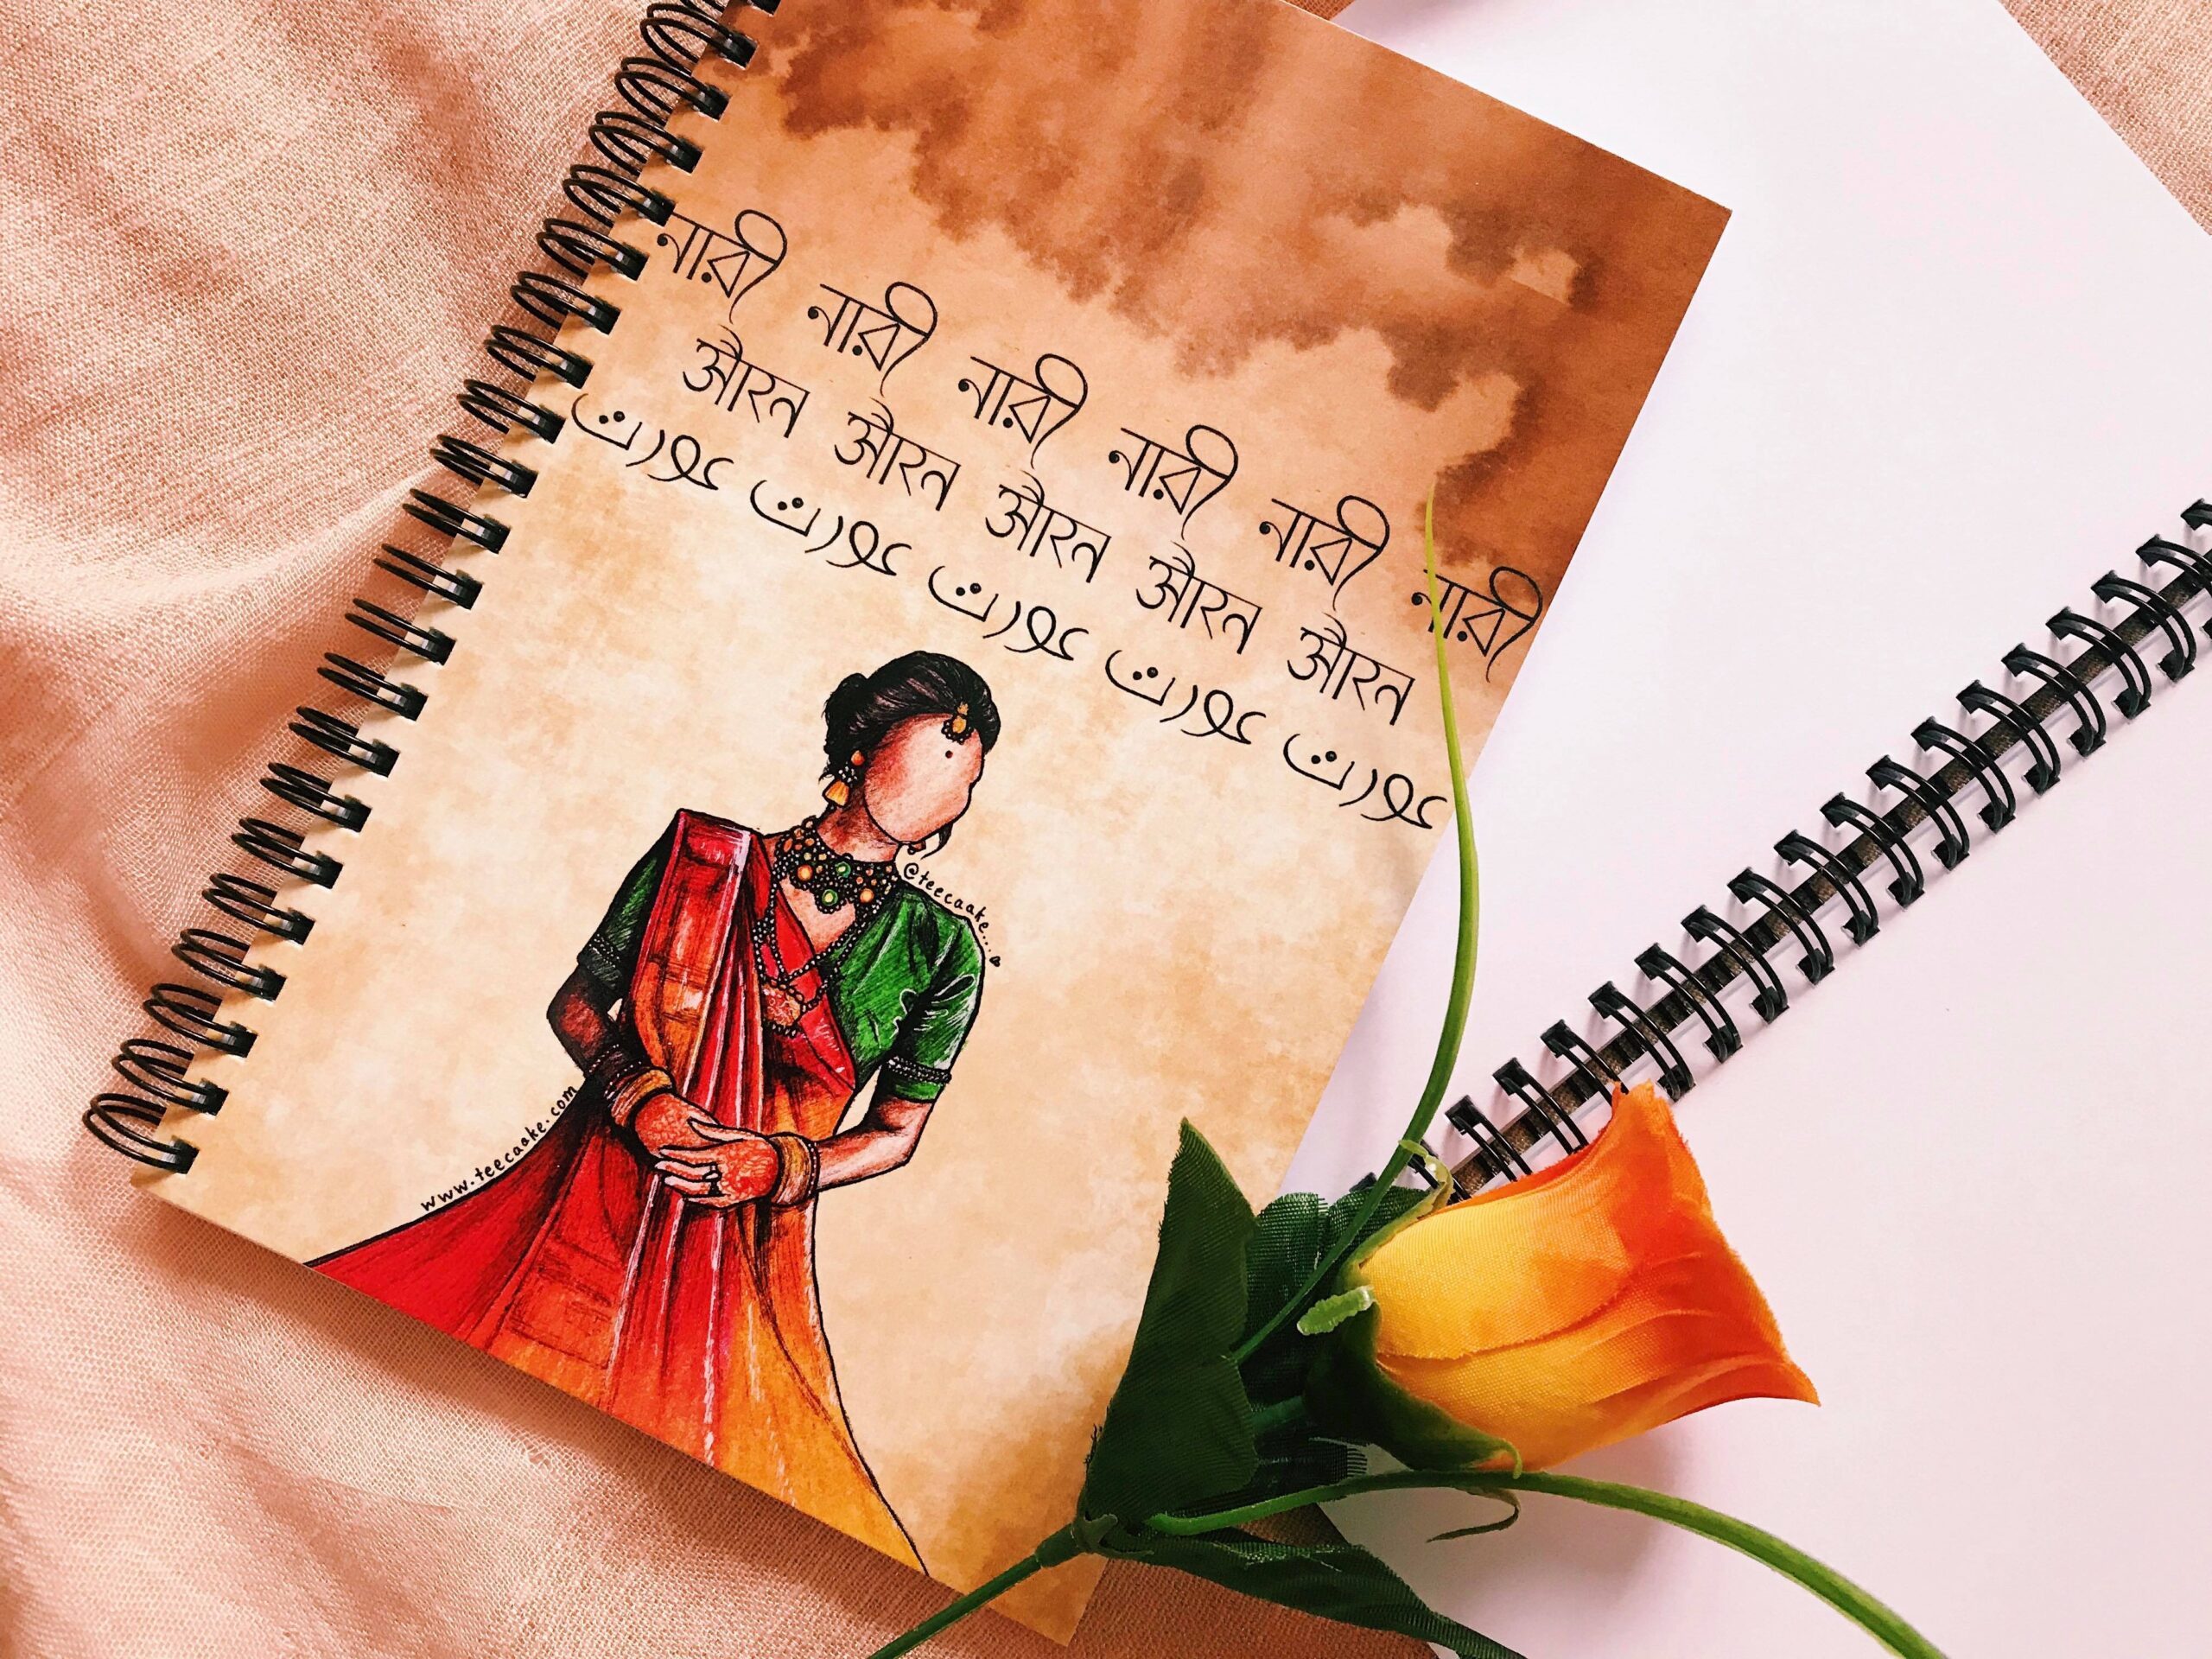 নারী নারী নারী নারী নারী নারী
औरत औरत औरत औरत औरत
عورت عورت عورت عورت عورت
@teecaake...
www.teecaake.com